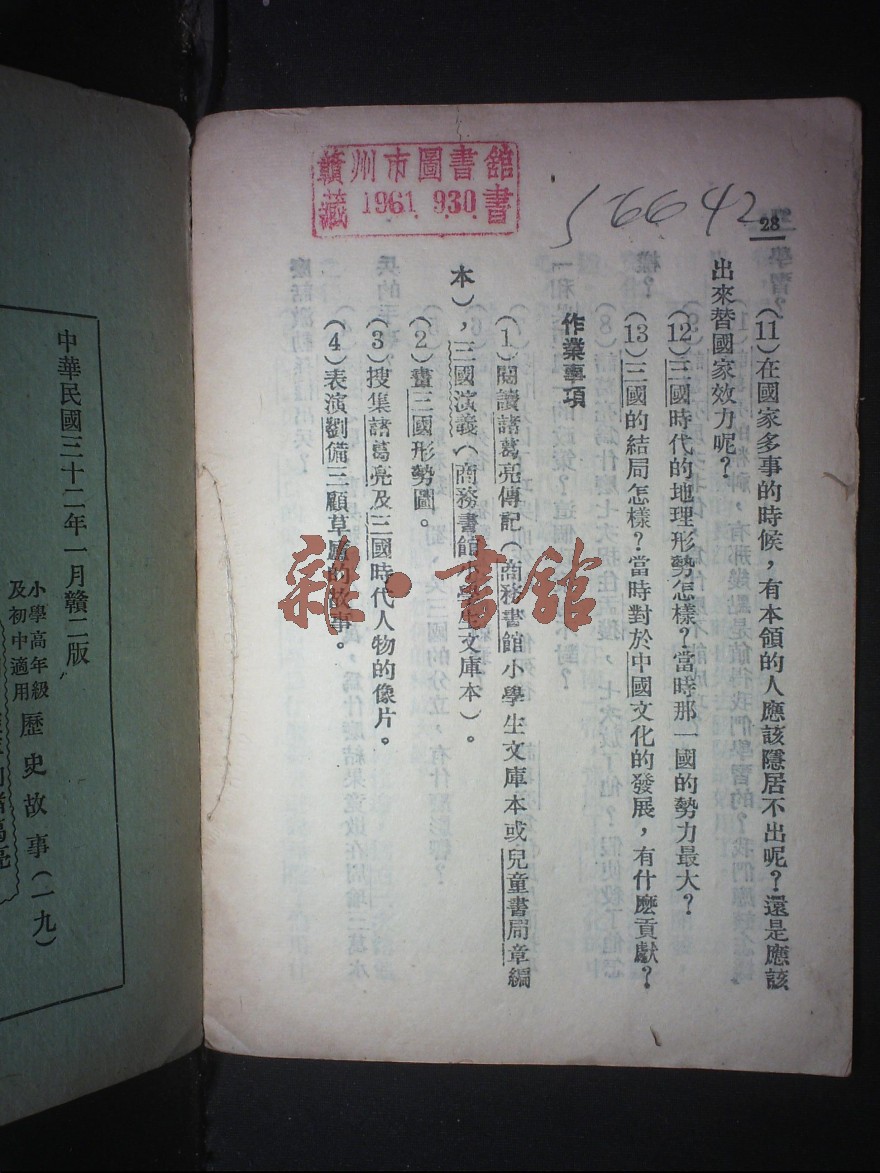 贛州市圖書館
藏 1961. 9.30. 書
56642
28
(11)在國家多事的時候，有本領的人應該隱居不出呢？還是應該
出來替國家效力呢？
(12)三國時代的地理形勢怎樣？當時那一國的勢力最大？
(13)三國的結局怎樣？當時對於中國文化的發展，有什麼貢獻？
作業事項
(1)閱讀諸葛亮傳記(商務書館小學生文庫本或兒童書局章編
本)，三國演義(商務書館小學生文庫本)。
(2)畫三國形勢圖。
(3)搜集諸葛亮及三國時代人物的像片。
(4)表演劉備三顧草廬的故事。
雜·書館
中華民國三十二年一月贛二版
小學高年級
及初中適用
歷史故事(一九)
諸葛亮